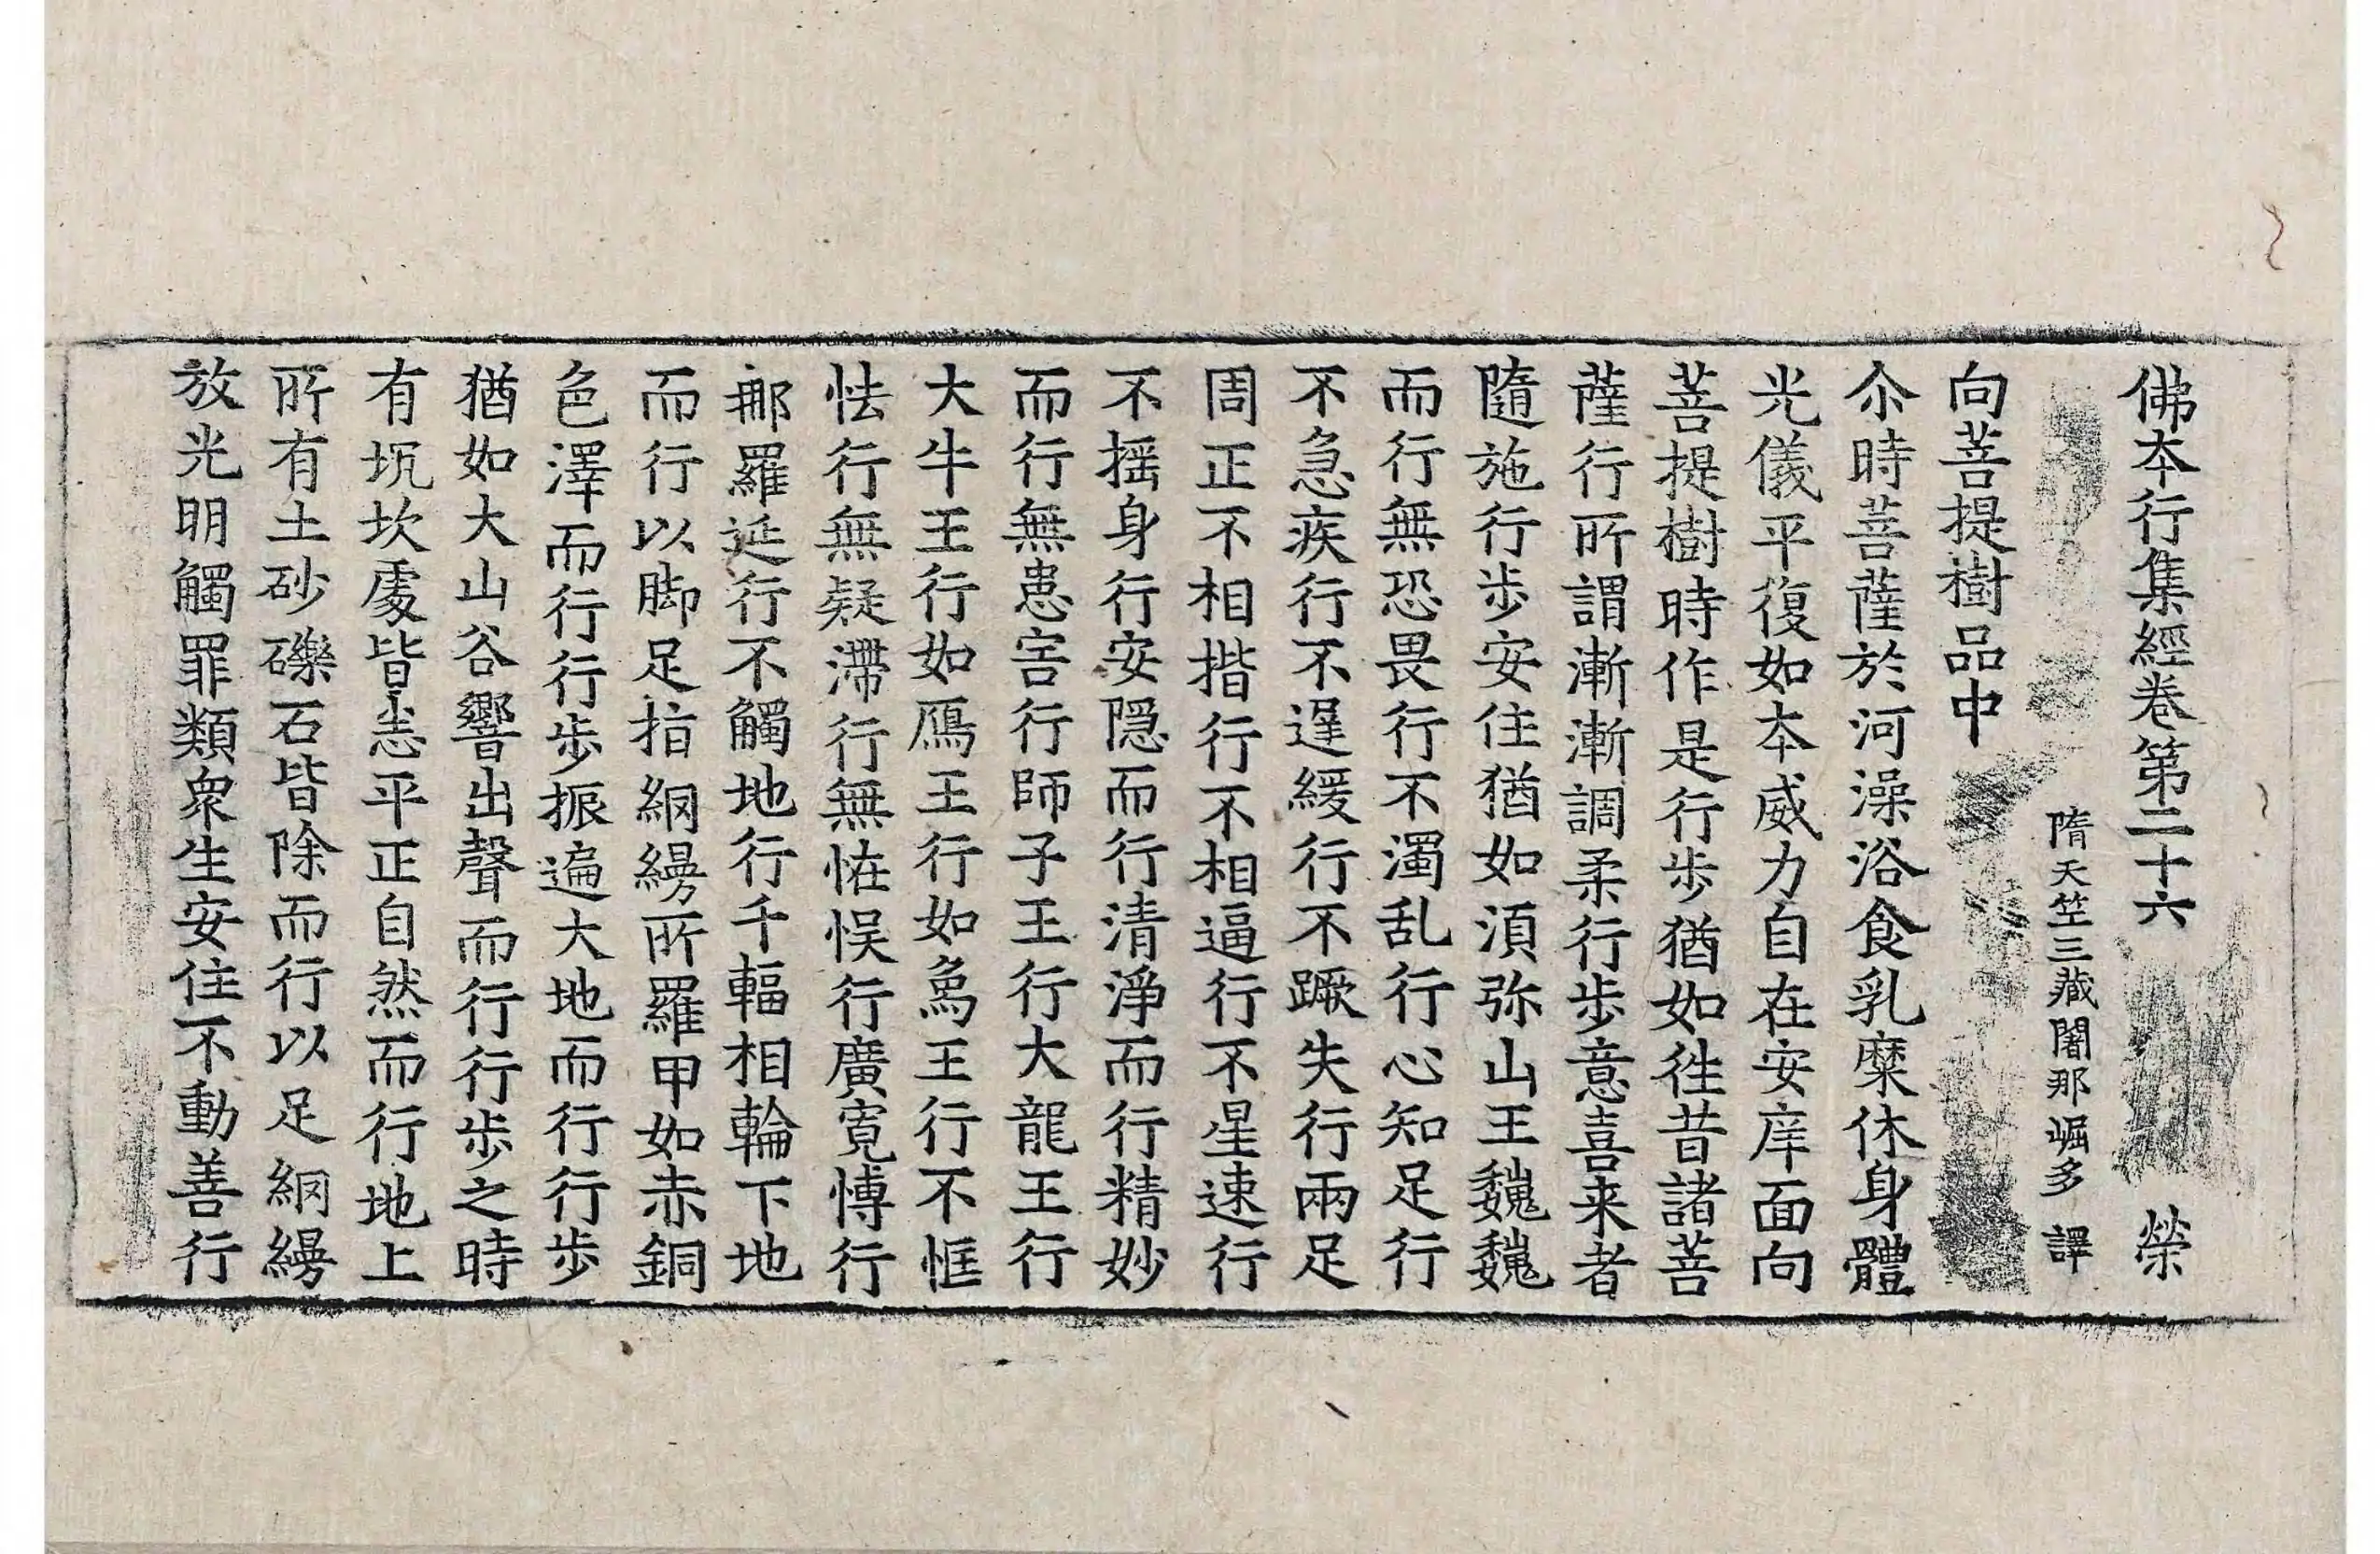 佛本行集經卷第二十六 榮
隋天竺三藏闍那崛多 譯
向菩提樹品中
尒時菩薩於河澡浴食乳糜休身體
光儀平復如本威力自在安庠面向
菩提樹時作是行步猶如徃昔諸菩
薩行所謂漸漸調柔行步意喜来者
隨施行步安住猶如湏弥山王巍巍
而行無恐畏行不濁乱行心知足行
不急疾行不遲緩行不蹶失行兩足
周正不相揩行不相逼行不星速行
不揺身行安隠而行清淨而行精妙
而行無患害行師子王行大龍王行
大牛王行如鴈王行如𤉢王行不恇
怯行無疑滯行無恠悞行廣寛愽行
那羅延行不觸地行千輻相輪下地
而行以脚足指網縵所羅甲如赤銅
色澤而行行步振遍大地而行行步
猶如大山谷響出聲而行行步之時
有坑坎處皆悉平正自然而行地上
所有土砂礫石皆除而行以足網縵
放光明觸罪類衆生安住不動善行